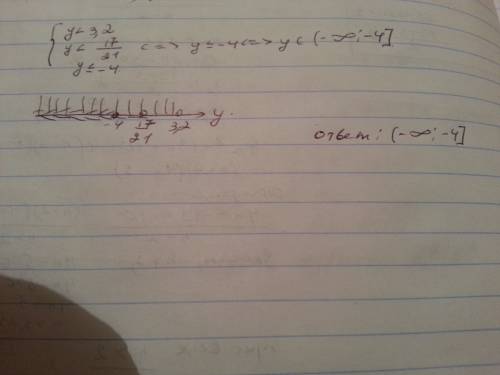 { y < 3,2
y < 17/21 <=> y ≤ -4 <=> y ∈ (-∞; -4]
y ≤ -4
-4 17/21 3,2 y
ответ: (-∞; -4]